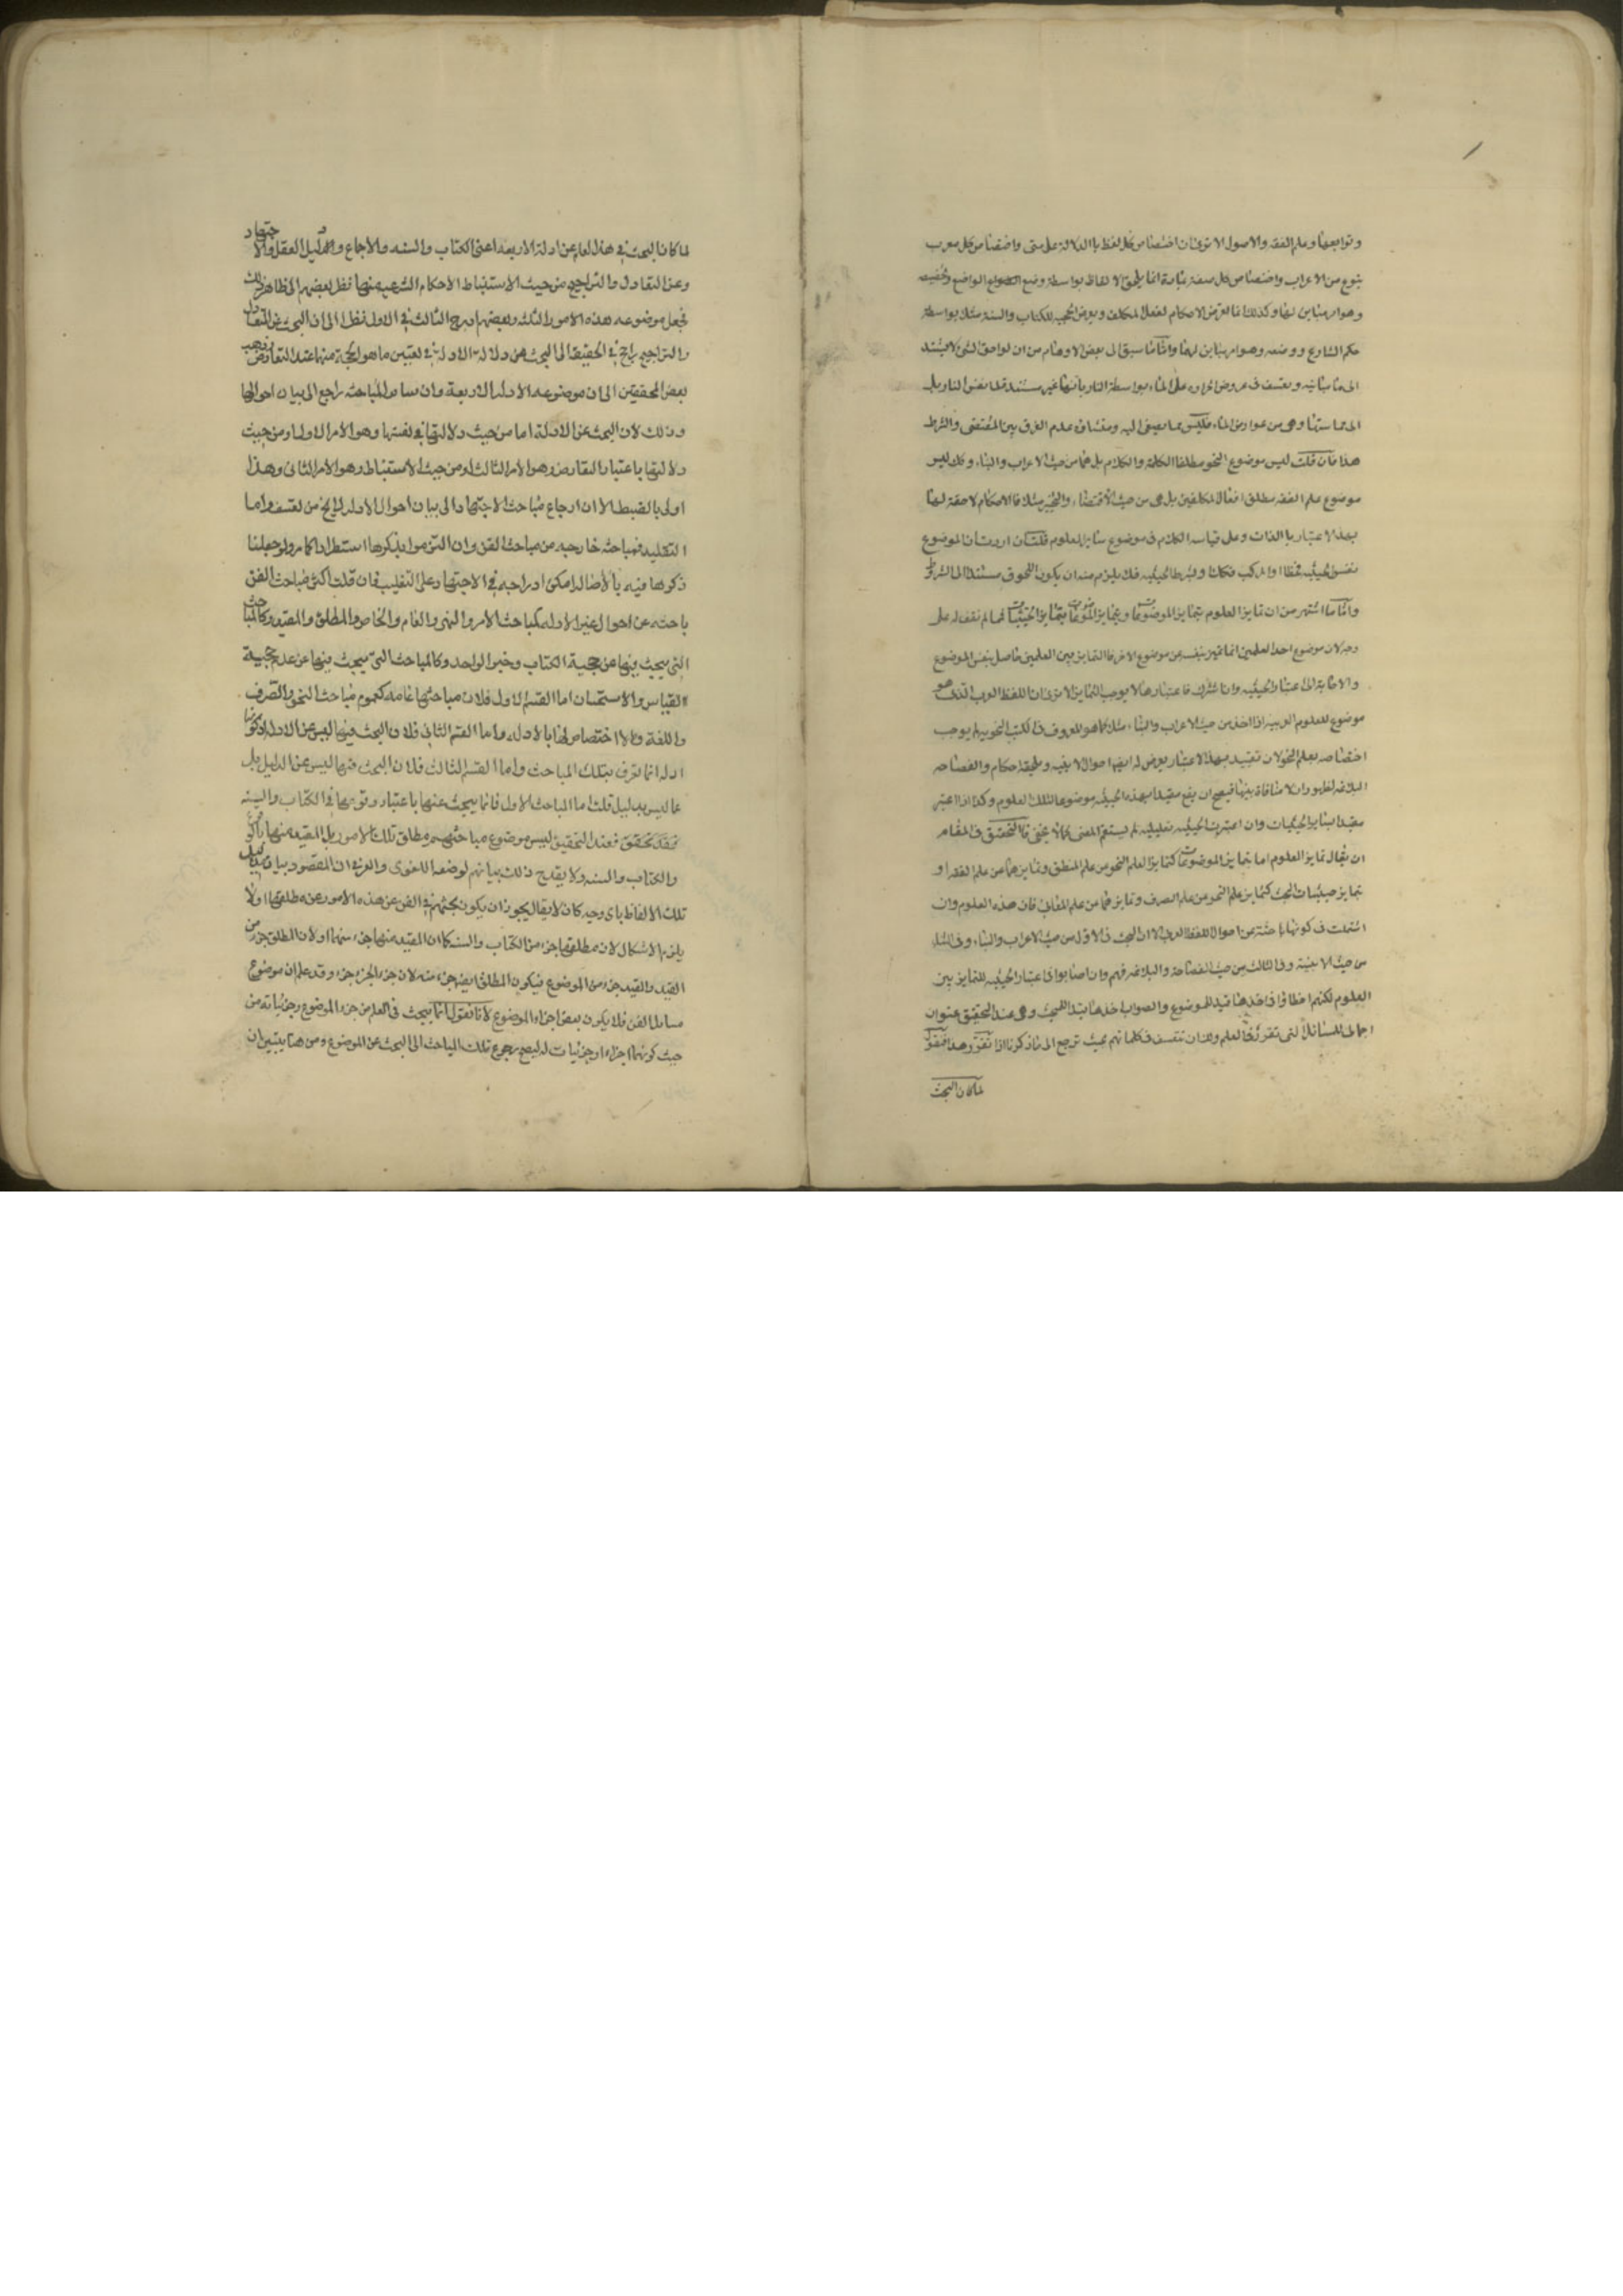 وتوابعها وعلم الفقه والاصول الا ترى ان اختصاص كل لفظ بالدلالة على شئ واختصاص كل معرب
بنوع من الاعراب واختصاص كل صفة بمادة انما يلحق الالفاظ بواسطة وضع الواضع وتخصيصه
وهو امر مباين لها وكذلك ما لعروض الاحكام لفعل المكلف وعروض الحجية للكتاب والسنة مثلا بواسطة
حكم الشارع ووضعه وهو امر مباين لهما واما ما سبق الى بعض الاوهام من ان لواحق الشئ لا يستند
الى مباينه وتعسف في عروض الحرارة على الماء بواسطة النار بانها غير مستندة الى نفس النار بل
الى مماستها وهى من عوارض الماء فليس مما يصغى اليه ومنشاؤه عدم الفرق بين المقتضى والشرط
هذا فان قلت ليس موضوع النحو مطلقا الكلمة والكلام بل هما من حيث الاعراب والبناء وكذا ليس
موضوع علم الفقه مطلق افعال المكلفين بل هى من حيث الاقتضاء والتخيير مثلا فالاحكام لاحقة لها
بهذا الاعتبار بالذات وعلى قياسه الكلام في موضوع ساير العلوم قلت ان اردت ان الموضوع
نفس الحيثية فقط او المركب فكلا ولشرط الحيثية فلا يلزم منه ان يكون اللحوق مستندا الى الشرط
واما ما اشتهر من ان تمايز العلوم بتمايز الموضوعات وتمايز الموضوعات بتمايز الحيثيات فمما لم نقف له على
وجه لان موضوع احد العلمين ان تميز بنفسه عن موضوع الاخر فالتمايز بين العلمين حاصل بنفس الموضوع
والا حاجة الى اعتبار الحيثية وان اشترك فاعتبارها لا يوجب التمايز الا ترى ان اللفظ العربى الذى هو
موضوع للعلوم العربية اذا اخذ من حيث الاعراب والبناء مثلا كما هو المعروف في الكتب النحوية لم يوجب
اختصاصه بعلم النحو لان تقييده بهذا الاعتبار يعرض له ايضا احوال الابنية ويلحقه احكام والفصاحة
البلاغة لظهور ان لا منافاة بينها فيصح ان يقع مقيدا بهذه الحيثية موضوعا لتلك العلوم وكذا اذا اعتبر
مقيدا بساير الحيثيات وان اعتبرت الحيثية تعليلية لم يستقم المعنى كما لا يخفى فالتحقيق في المقام
ان يقال تمايز العلوم اما بتمايز الموضوعات كتمايز العلم النحو من علم المنطق وتمايزهما عن علم الفقه او
بتمايز حيثيات البحث كتمايز علم النحو عن علم الصرف وتمايزهما من علم المعانى فان هذه العلوم وان
اشتركت في كونها باحثة عن احوال اللفظ العربى الا ان البحث في الاول من حيث الاعراب والبناء وفى الثانى
من حيث الابنية وفى الثالث من حيث الفصاحة والبلاغة فهم وان اصابوا في اعتبار الحيثية للتمايز بين
العلوم لكنهم اخطاؤا في اخذها قيدا للموضوع والصواب اخذها قيدا للبحث وهى عند التحقيق عنوان
اجمالى للمسائل التى تقرر في العلم ولك ان تتعسف في كلماتهم بحيث ترجع الى ما ذكرنا اذا تقرر هذا فنقول
لما كان البحث
لما كان البحث في هذا العلم عن ادلة الاربعة اعنى الكتاب والسنه والاجماع والدليل العقل والاجتهاد
وعن التعادل والتراجيح من حيث الاستنباط الاحكام الشرعيه منها نظر بعضهم الى ظاهر ذلك
فجعل موضوعه هذه الامور الثلثة وبعضهم ادرج الثالث في الاول نظرا الى ان البحث عن التعادل
والتراجيح راجع في الحقيقة الى البحث عن دلالة الادلة في تعيين ما هو الحجة منها عند التعارض وذهب
بعض المحققين الى ان موضوعه الادلة الاربعة وان ساير المباحثه راجع الى بيان احوالها
وذلك لان البحث عن الادلة اما من حيث دلالتها في نفسها وهو الامر الاول او من حيث
دلالتها باعتبار التعارض وهو الامر الثالث او من حيث الاستنباط وهو الامر الثانى وهذا
اولى بالضبط الا ان ارجاع مباحث الاجتهاد الى بيان احوال الادلة لا يخ من تعسف واما
التقليد فمباحثه خارجه من مباحث الفن وان التزموا بذكرها استطرادا كما مر ولو جعلنا
ذكرها فيه بالاصالة امكن ادراجه في الاجتهاد على التغليب فان قلت اكثر مباحث الفن
باحثه عن احوال غير الادله كمباحث الامر والنهى والعام والخاص والمطلق والمقيد وكالمباحث
التى يبحث فيها عن حجية الكتاب وخبر الواحد وكالمباحث التى يبحث فيها عن عدم حجية
القياس والاستحسان اما القسم الاول فلان مباحثها عامه كعموم مباحث النحو والتصرف
واللغة ولا اختصاص لها بالادله واما القسم الثانى فلان البحث فيها ليس عن الادلة اذ كونها
ادلة انما تعرف بتلك المباحث واما القسم الثالث فلان البحث فيها ليس عن الدليل بل
عما ليس بدليل قلت اما المباحث الاول فانما يبحث عنها باعتبار وقوعها في الكتاب والسنه
فعند التحقيق ليس موضوع مباحثهم مطلق تلك الامور بل المقيد منها
والكتاب والسنه ولا يقدح ذلك بيانهم لوضعه اللغوى والعرفى ان المقصود بيان مداليل
تلك الالفاظ باى وجه كان لا يقال يجوز ان يكون بحثهم في الفن عن هذه الامور عن مطلقها ولا
يلزم الاشكال لان مطلقها جزء من الكتاب والسنه كما ان المقيد منها جزء منهما ولان المطلق جزء من
المقيد والمقيد جزء من الموضوع فيكون المطلق ايضا جزء منه لان جزء الجزء جزء وقد علم ان موضوع
مسائل الفن قد يكون بعض اجزاء الموضوع لانا نقول انما يبحث في العلم من جزء الموضوع وجزئياته من
حيث كونهما اجزاء او جزئيات له ليصح رجوع تلك المباحث الى البحث عن الموضوع ومن هنا يتبين ان